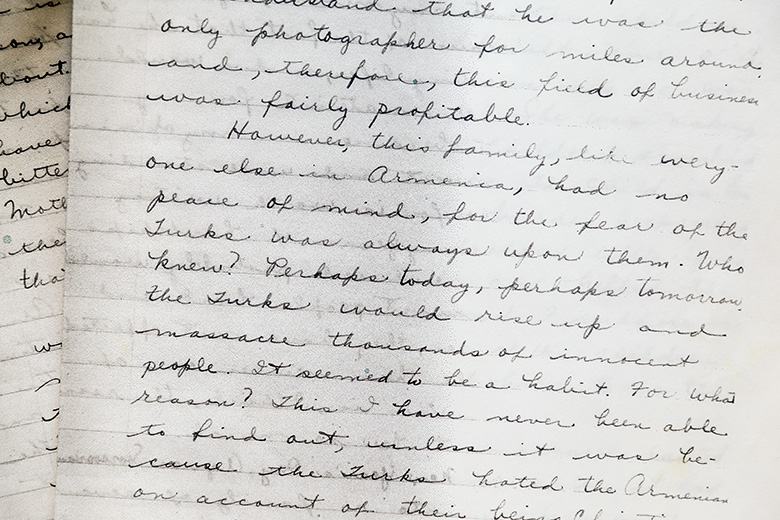 that he was the
only photographer for miles around,
and, therefore, this field of business
was fairly profitable.
However, this family, like every-
one else in Armenia, had no
peace of mind, for the fear of the
Turks was always upon them. Who
knew? Perhaps today, perhaps tomorrow,
the Turks would rise up and
massacre thousands of innocent
people. It seemed to be a habit. For what
reason? This I have never been able
to find out, unless it was be-
cause the Turks hated the Armenian
on account of their being
is
a
about.
which
have
bitte
Moth
the
tha
w